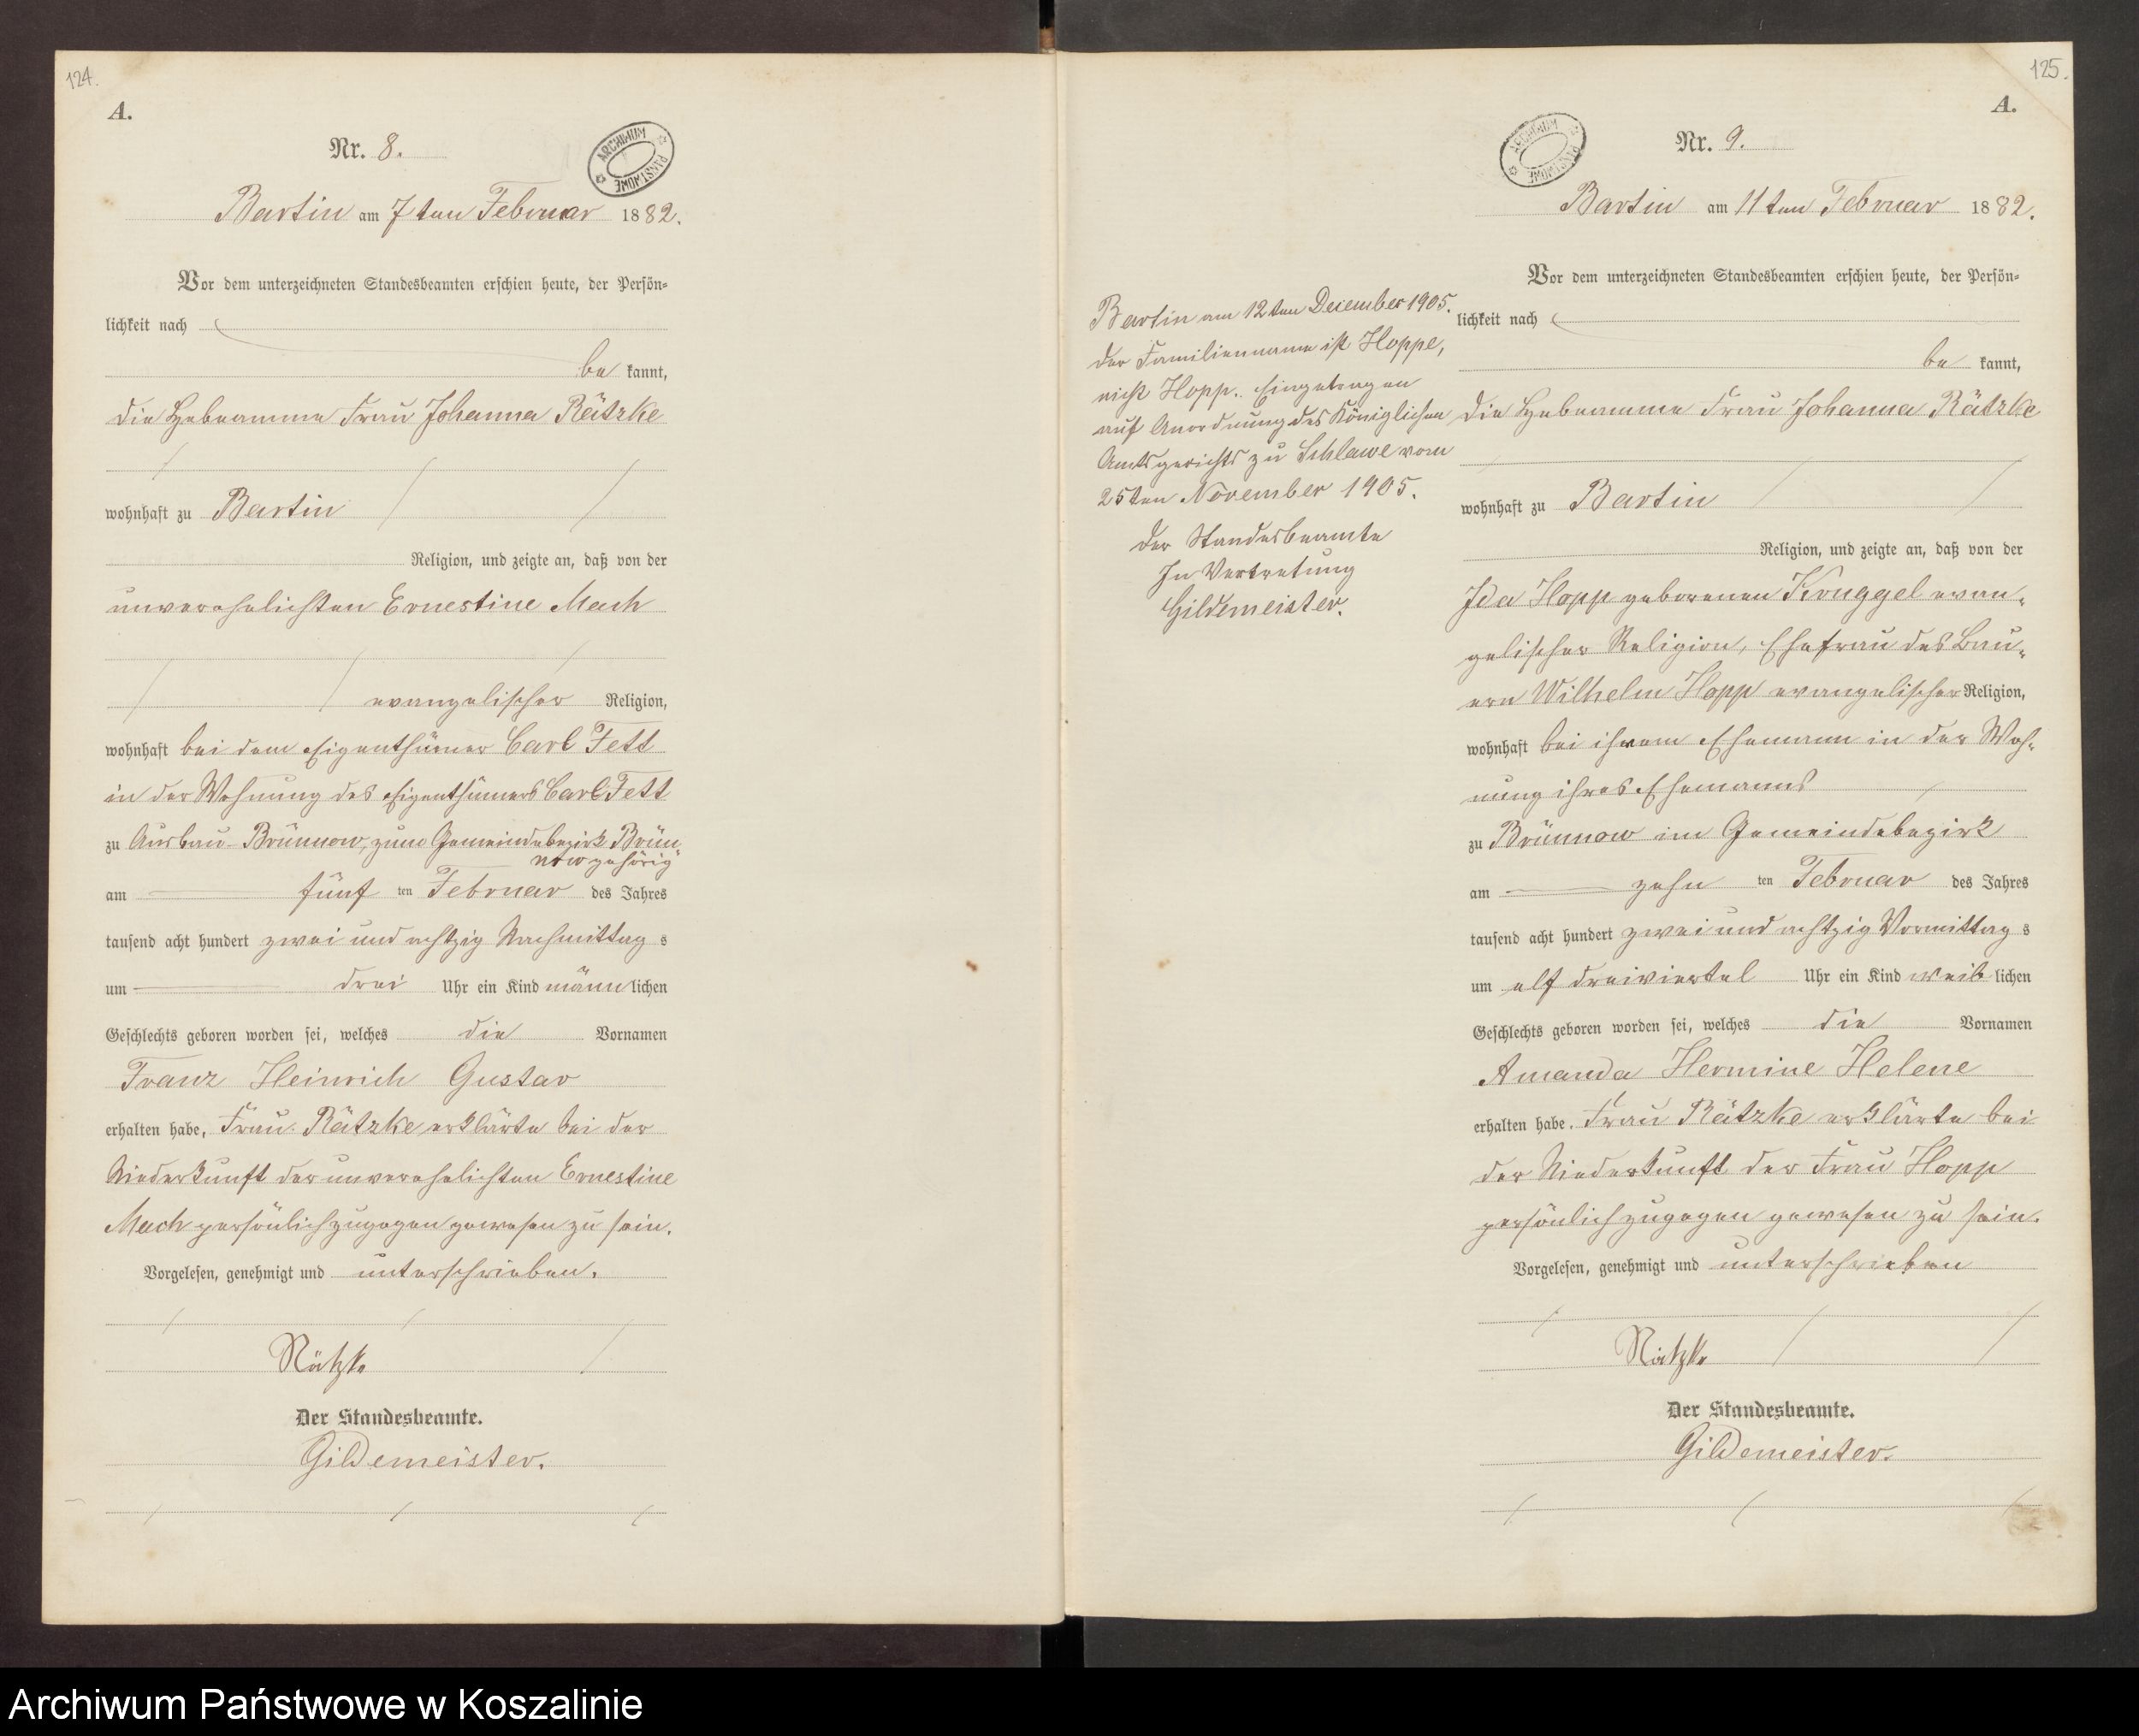 124.
A.
Nr. 8.
ARCHIWUM PAŃSTWOWE
Bartin am 7ten Februar 1882.
Vor dem unterzeichneten Standesbeamten erschien heute, der Persön-
lichkeit nach
be kannt,
die Hebeamme Frau Johanna Rätzke
wohnhaft zu Bartin
Religion, und zeigte an, daß von der
unverehelichten Ernestine Mach
evangelischer Religion,
wohnhaft bei dem Eigenthümer Carl Fett
in der Wohnung des Eigenthümers Carl Fett
zu Ausbau-Brünnow, zum Gemeindebezirk Brün-
now gehörig
am fünf ten Februar des Jahres
tausend acht hundert zwei und achtzig Nachmittag s
um drei Uhr ein Kind männ lichen
Geschlechts geboren worden sei, welches die Vornamen
Franz Heinrich Gustav
erhalten habe. Frau Rätzke erklärte bei der
Niederkunft der unverehelichten Ernestine
Mach persönlich zugegen gewesen zu sein.
Vorgelesen, genehmigt und unterschrieben.
Rätzke
Der Standesbeamte.
Gildemeister.
125.
A.
Nr. 9.
ARCHIWUM PAŃSTWOWE
Bartin am 11ten Februar 1882.
Vor dem unterzeichneten Standesbeamten erschien heute, der Persön-
lichkeit nach
be kannt,
die Hebeamme Frau Johanna Rätzke
wohnhaft zu Bartin
Religion, und zeigte an, daß von der
Ida Hopp geborenen Kruggel evan-
gelischer Religion, Ehefrau des Bau-
ern Wilhelm Hopp evangelischer Religion,
wohnhaft bei ihrem Ehemann in der Woh-
nung ihres Ehemanns
zu Brünnow im Gemeindebezirk
am zehn ten Februar des Jahres
tausend acht hundert zwei und achtzig Vormittag s
um elf dreiviertel Uhr ein Kind weib lichen
Geschlechts geboren worden sei, welches die Vornamen
Amanda Hermine Helene
erhalten habe. Frau Rätzke erklärte bei
der Niederkunft der Frau Hopp
persönlich zugegen gewesen zu sein.
Vorgelesen, genehmigt und unterschrieben
Rätzke
Der Standesbeamte.
Gildemeister.
Bartin am 12ten Dezember 1905.
Der Familienname ist Hoppe,
nicht Hopp. Eingetragen
auf Anordnung des Königlichen
Amtsgerichts zu Schlawe vom
25ten November 1905.
Der Standesbeamte
In Vertretung
Gildemeister.
Archiwum Państwowe w Koszalinie